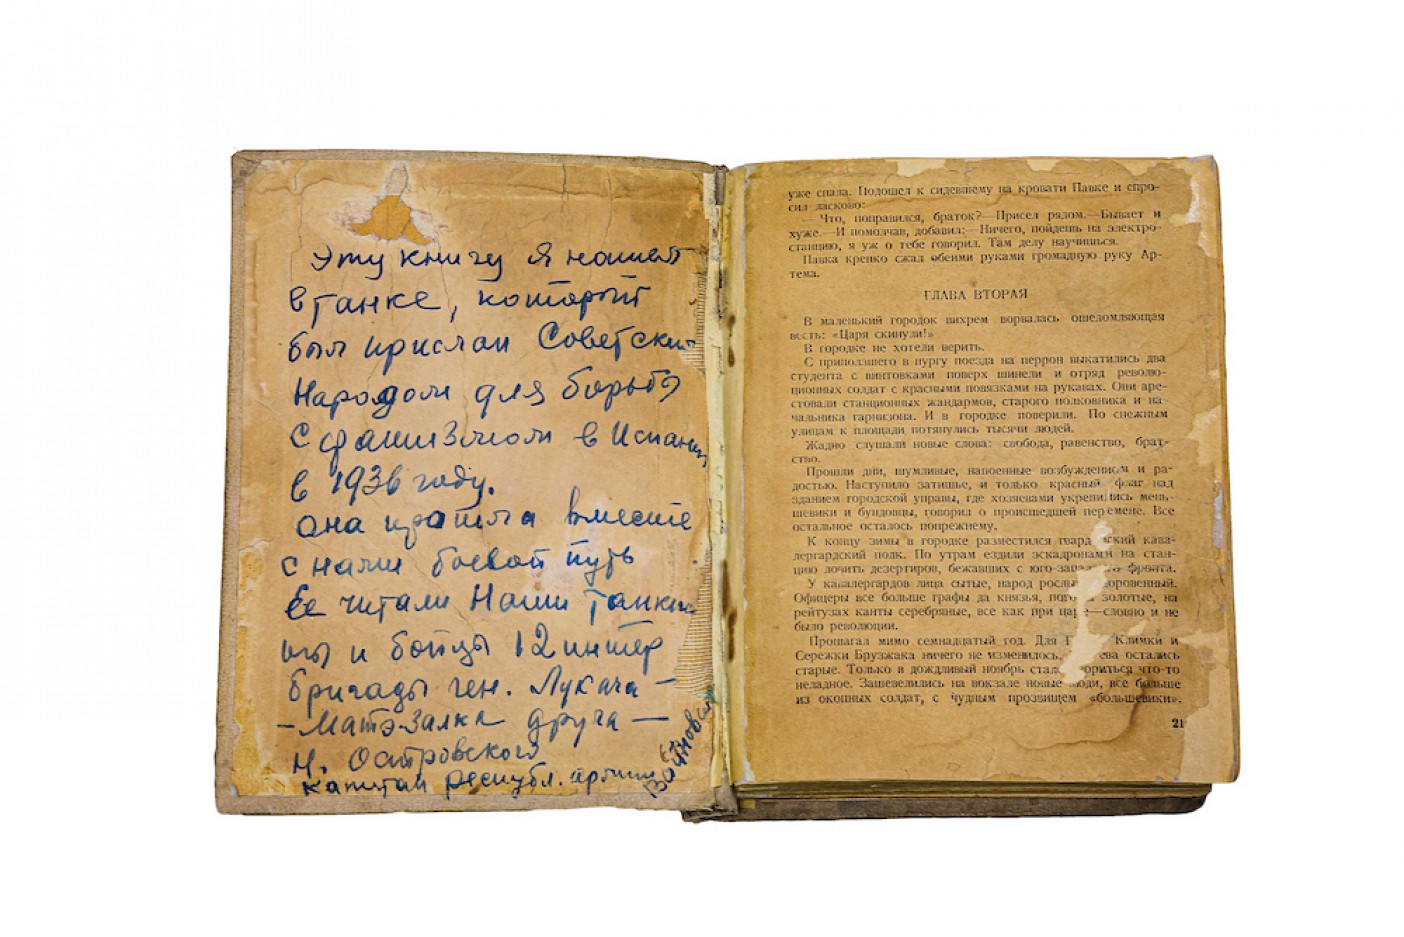 Эту книгу я нашел
в танке, который
был прислан Советским
Народом для борьбы
с фашизмом в Испании
в 1936 году.
она прошла вместе
с нами боевой путь
Ее читали Наши танкис
ты и бойцы 12 интер
бригады ген. Лукача –
– Матэ-Залка друга –
Н. Островского
Капитан республ. армии
уже спала. Подошел к сидевшему на кровати Павке и спро-
сил ласково:
— Что, поправился, браток?—Присел рядом.—Бывает и
хуже.—И помолчав, добавил:—Ничего, пойдешь на электро-
станцию, я уж о тебе говорил. Там делу научишься.
Павка крепко сжал обеими руками громадную руку Ар-
тема.
ГЛАВА ВТОРАЯ
В маленький городок вихрем ворвалась ошеломляющая
весть: «Царя скинули!»
В городке не хотели верить.
С приползшего в пургу поезда на перрон выкатились два
студента с винтовками поверх шинели и отряд револю-
ционных солдат с красными повязками на рукавах. Они аре-
стовали станционных жандармов, старого полковника и на-
чальника гарнизона. И в городке поверили. По снежным
улицам к площади потянулись тысячи людей.
Жадно слушали новые слова: свобода, равенство, брат-
ство.
Прошли дни, шумливые, напоенные возбуждением и ра-
достью. Наступило затишье, и только красный флаг над
зданием городской управы, где хозяевами укрепились мень-
шевики и бундовцы, говорил о происшедшей перемене. Все
остальное осталось попрежнему.
К концу зимы в городке разместился гвардейский кава-
лергардский полк. По утрам ездили эскадронами на стан-
цию ловить дезертиров, бежавших с юго-западного фронта.
У кавалергардов лица сытые, народ рослый, здоровенный.
Офицеры все больше графы да князья, погоны золотые, на
рейтузах канты серебряные, все как при царе—словно и не
было революции.
Прошагал мимо семнадцатый год. Для Климки и
Сережки Брузжака ничего не изменилось, остались
старые. Только в дождливый ноябрь стало твориться что-то
неладное. Зашевелились на вокзале новые люди, все больше
из окопных солдат, с чудным прозвищем «большевики».
21